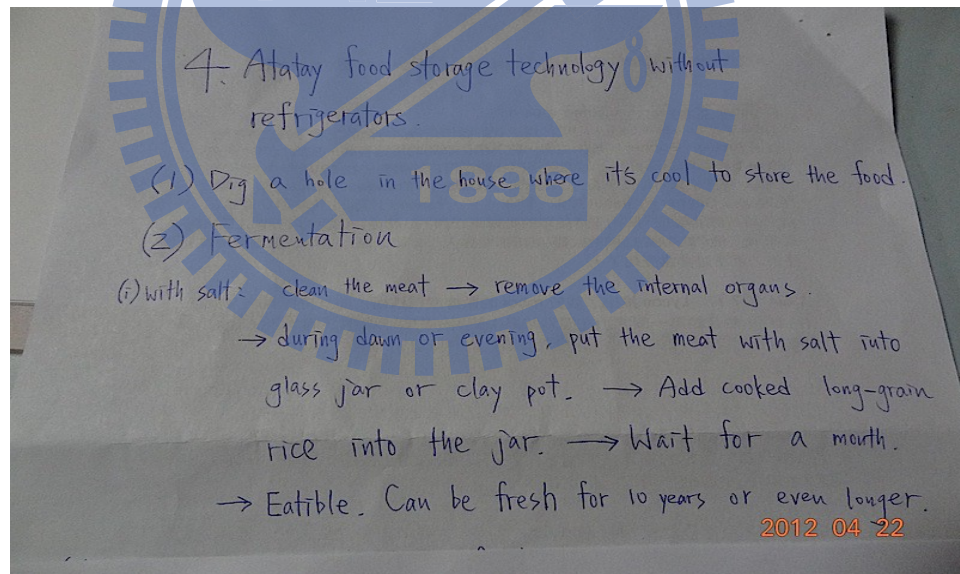 4. Atatay food storage technology without
refrigerators.
(1) Dig a hole in the house where it's cool to store the food.
(2) Fermentation
(i) with salt: clean the meat → remove the internal organs.
→ during dawn or evening, put the meat with salt into
glass jar or clay pot. → Add cooked long-grain
rice into the jar. → Wait for a month.
→ Eatible. Can be fresh for 10 years or even longer.
2012 04 22
1896